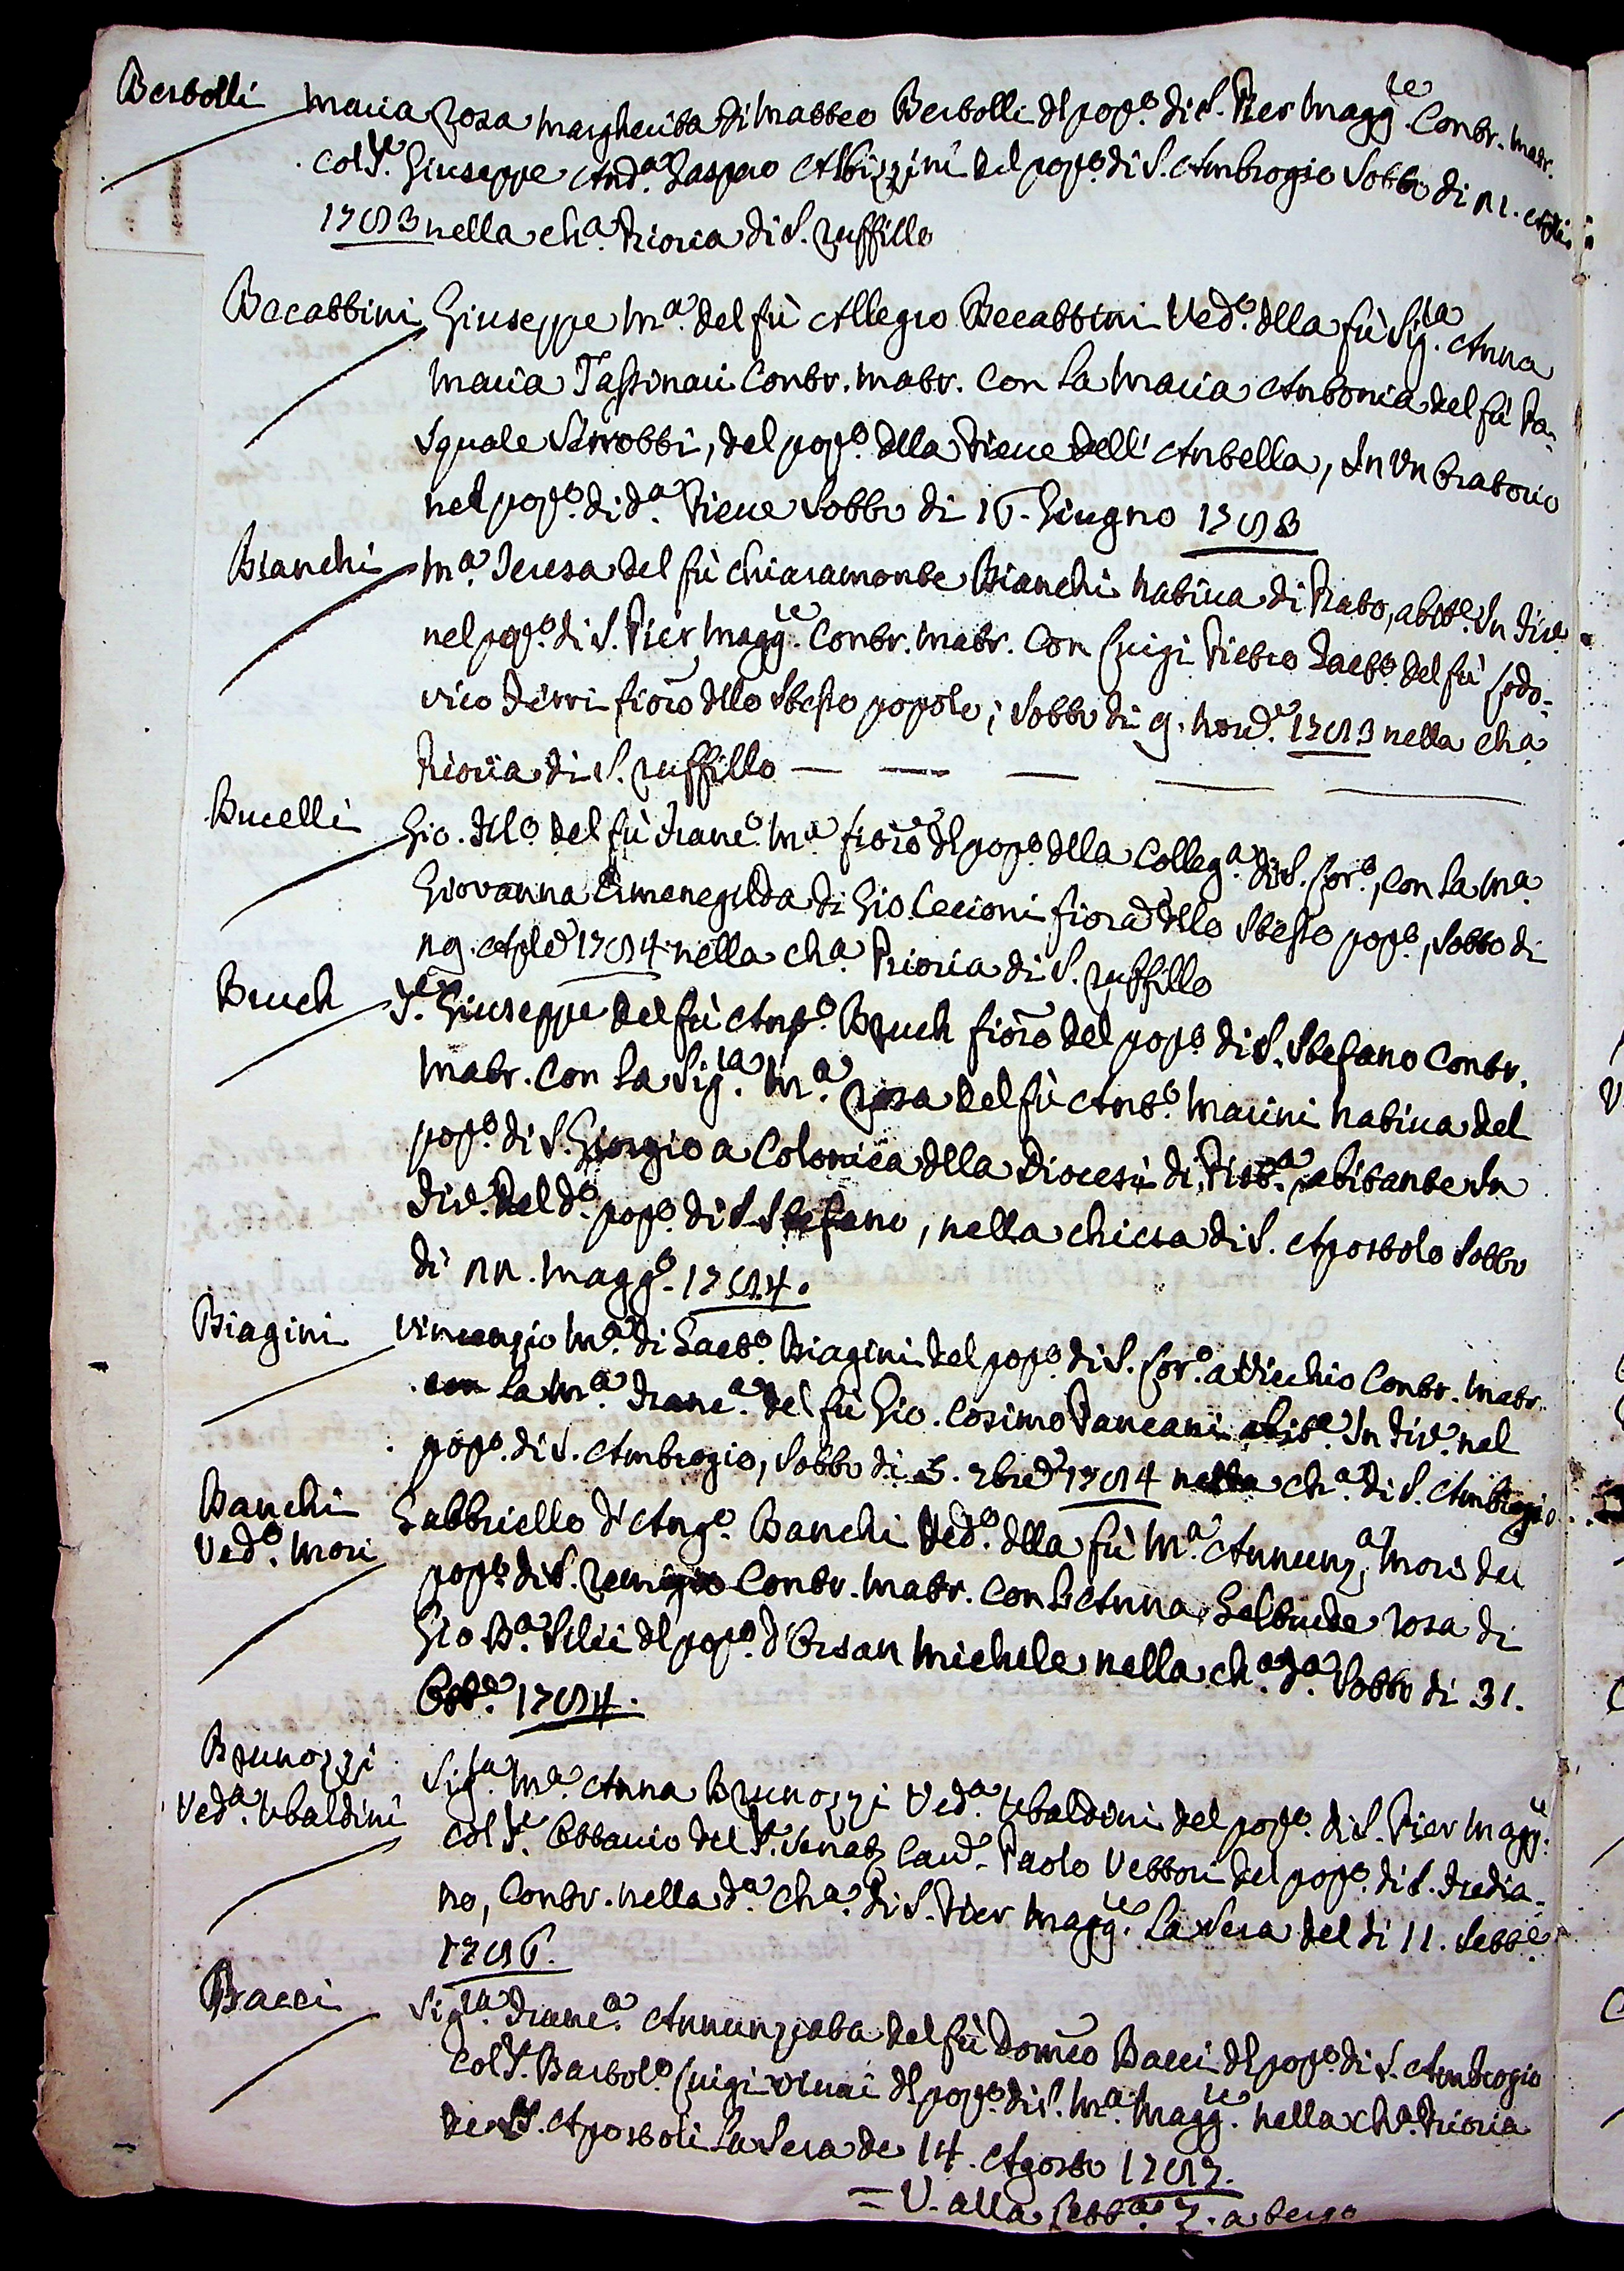 Bertolli Maria Rosa Margherita di Matteo Bertolli dl pop.o di S. Pier Magg.re Contr. matr.
col S.r Giuseppe And.a Gaspero Albizzini del pop.o di S. Ambrogio Sotto di 21.
1793 nella ch.a Prioria di S. Ruffillo
Becattini Giuseppe M.a del fù Allegro Becattini Ved.o dlla fù Sig.ra Anna
Maria Tassinari Contr. matr. con la Maria Antonia del fù Pa=
squale Serrotti, del pop.o dlla Pieve dell' Antella, In Un Oratorio
nel pop.o di d.a Pieve Sotto di 16. Giugno 1793
Bianchi M.a Teresa del fù Chiaramonte Bianchi nativa di Prato, abit.e In Fir.e
nel pop.o di S. Pier Magg.re Contr. Matr. con Luigi Pietro Gaet.o del fù Lodo=
vico Ferri fior.o dllo Stesso popolo; Sotto di 9. Nov.e 1793 nella Ch.a
Prioria di S. Ruffillo
Bucelli Gio. Fil.o del fù Franc.o M.a fior.o dl pop.o dlla Colleg.a di S. Lor.o, con la M.a
Giovanna Ermenegilda di Gio. Cecioni fior.a dllo Stesso pop.o, Sotto di
29. Aple 1794 nella ch.a Prioria di S. Ruffillo
Bruch S.r Giuseppe del fù Ang.o Bruch fior.o del pop.o di S. Stefano Contr.
Matr. con la Sig.ra M.a Rosa del fù Ant.o Marini nativa del
pop.o di S. Giorgio a Colonica dlla Diocesi di Pist.a abitante In
Fir.e del d.o pop.o di S. Stefano, nella chiesa di S. Apostolo Sotto
di 22. Magg.o 1794.
Biagini Vincenzio M.a di Gaet.o Biagini del pop.o di S. Lor.o a Vicchio Contr. Matr.
con la M.a Franc.a del fù Gio. Cosimo Pancani abit.e In Fir.e nel
pop.o di S. Ambrogio, Sotto di 5. 7bre 1794 nella Ch.a di S. Ambrogio
Banchi Gabbriello d'Ang.o Banchi Ved.o dlla fù M.a Annunz.a Mori del
Ved.o Mori pop.o di S. Remigio Contr. Matr. con la Anna Geltrude Rosa di
Gio Ba. Silii dl pop.o d'Orsan Michele nella ch.a d.a Sotto di 31.
Ott.e 1794.
Brunozzi Sig.ra M.a Anna Brunozzi Ved.a Ubaldini del pop.o di S. Pier Magg.re
Ved.a Ubaldini col S.r Ottavio del S.r Senat. Cav.e Paolo Vettori del pop.o di S. Fredia=
no, Contr. nella d.a Ch.a di S. Pier Magg.re la Sera del di 11. Sett.e
1796.
Bacci Sig.ra Franc.a Annunziata del fù Dom.co Bacci dl pop.o di S. Ambrogio
col S.r Bartol.o Luigi Vinai dl pop.o di S. M.a Magg.re nella ch.a Prioria
de SS. Apostoli la Sera de 14. Agosto 1797.
= V. alla Lett.a Z. a tergo